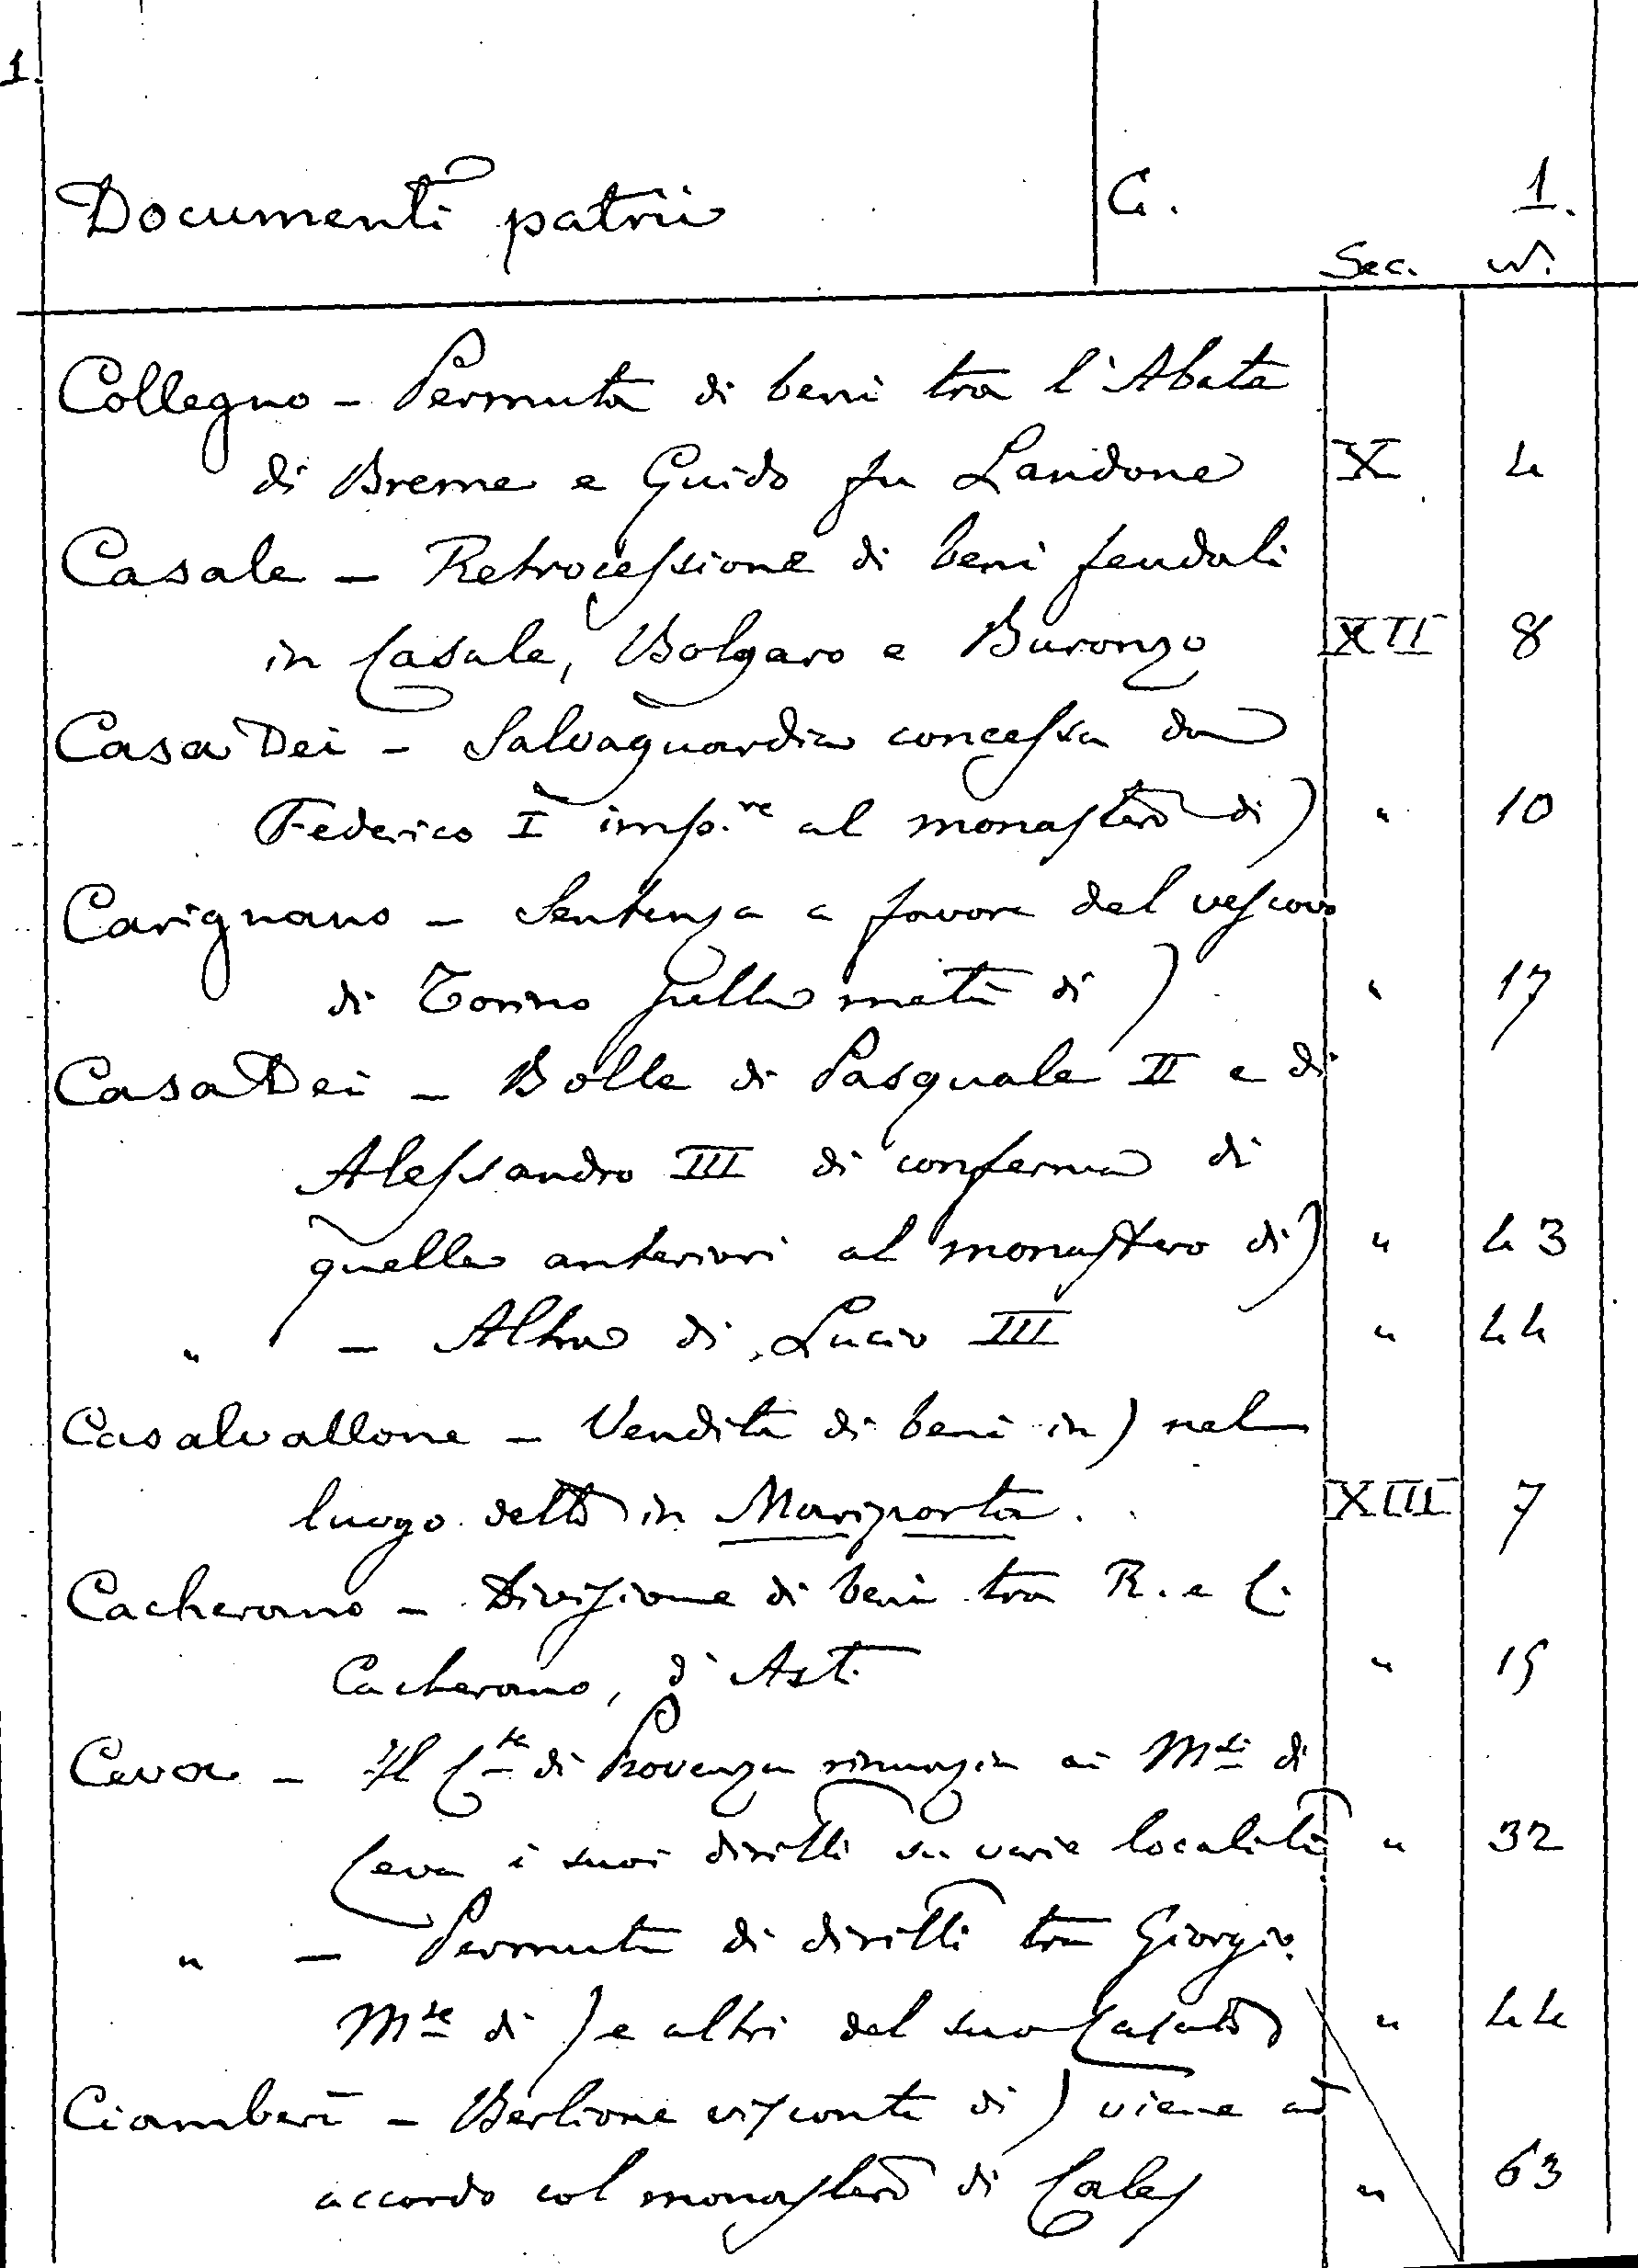 1.
Documenti patrii C. 1.
Sec. N.
Collegno - Permuta di beni tra l'Abate
di Breme e Guido fu Landone X 4
Casale - Retrocessione di beni feudali
in Casale, Bolgaro e Buronzo XII 8
Casa Dei - Salvaguardia concessa da
Federico I imp.re al monastero di) " 10
Carignano - Sentenza a favore del vescovo
di Torino sulla metà di) " 17
Casa Dei - Bolle di Pasquale II e di
Alessandro III di conferma di
quelle anteriori al monastero di) " 43
" - Altra di Lucio III " 44
Casalvallone - Vendita di beni in) nel
luogo detto in Mariporta. XIII 7
Cacherano - Divisione di beni tra R. e C.
Cacherano, d'Asti " 15
Ceva - Il Cte di Provenza rinunzia ai Msi di
Ceva i suoi diritti su varie località " 32
" - Permuta di diritti tra Giorgio
Mse di) e altri del suo Casato " 44
Ciamberì - Berlione visconte di) viene ad
accordo col monastero di " 63